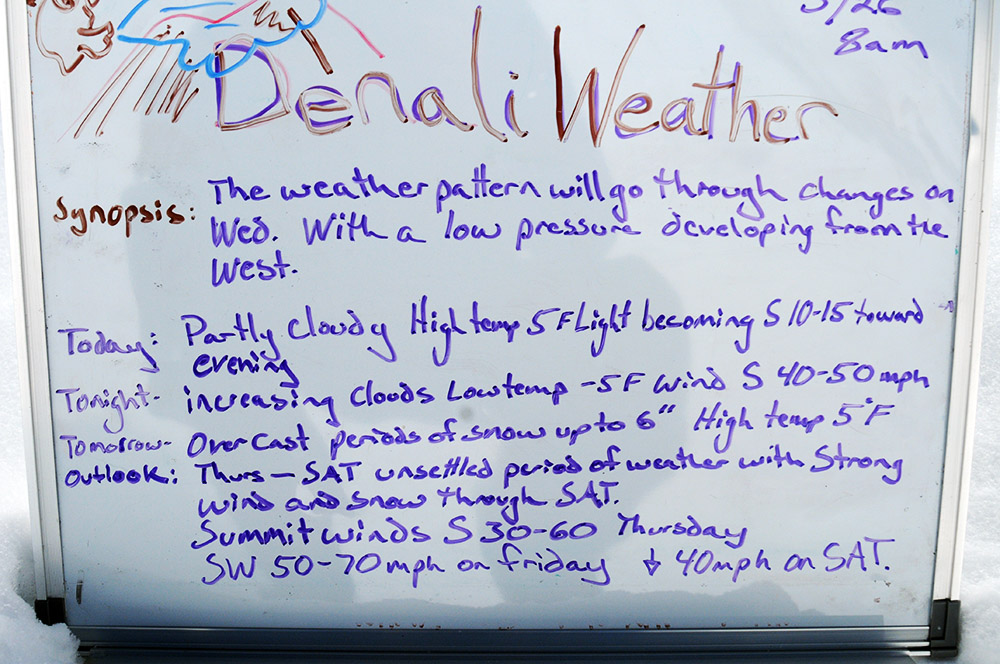 5/26
8am
Denali Weather
Synopsis: The weather pattern will go through changes on
Wed. With a low pressure developing from the
West.
Today: Partly Cloudy High temp 5F Light becoming S 10-15 toward
evening
Tonight- increasing clouds Low temp -5F Wind S 40-50 mph
Tomorrow- Overcast periods of snow up to 6" High temp 5°F
Outlook: Thurs - SAT unsettled period of weather with Strong
wind and snow through SAT.
Summit winds S 30-60 Thursday
SW 50-70 mph on friday ↓ 40mph on SAT.